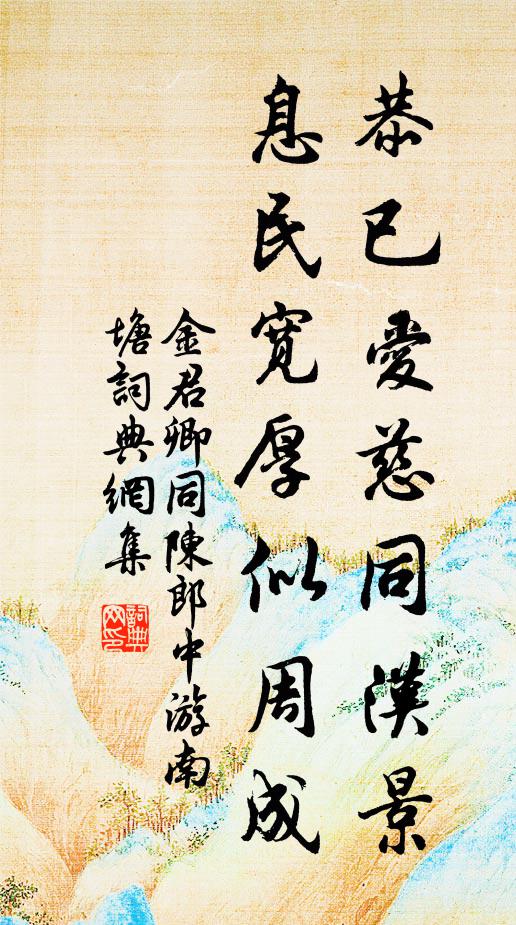 恭已愛慈同漢景
息民寬厚似周成
金君卿同陳郎中游南
塘詞典網集
詞典
网